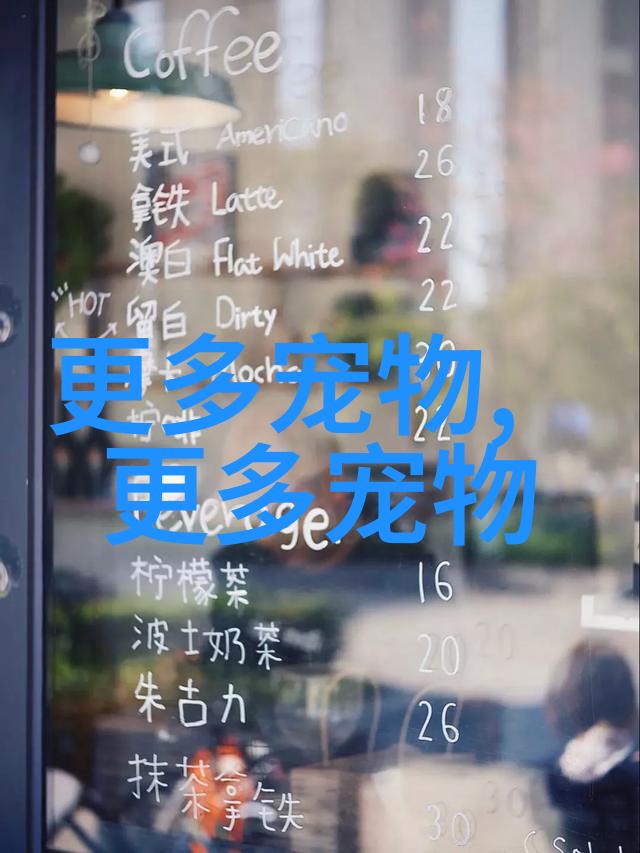 Coffee
美式 Americano 18
拿铁 Latte 26
澳白 Flat White 22
HOT
留白 Dirty 22
更多宠物,
更多宠物
柠檬茶 16
波士奶茶 20
朱古力 26
抹茶拿铁 30